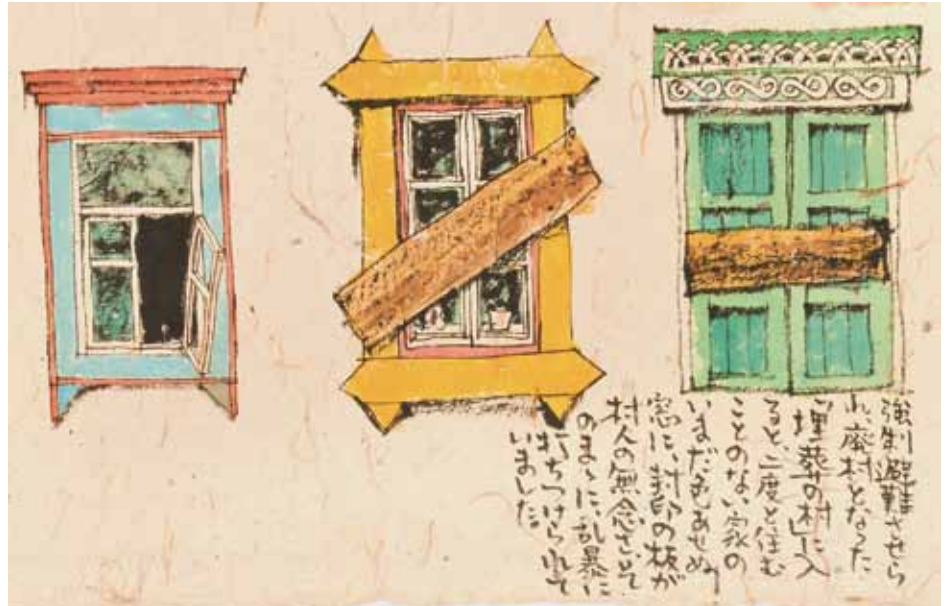 強制避難させら
れ、廃村となった
「埋葬の村」に入
ると、二度と住む
ことのない家の
いまだ色あせぬ
窓に、封印の板が
村人の無念さそ
のまゝに、乱暴に
打ちつけられて
いました。